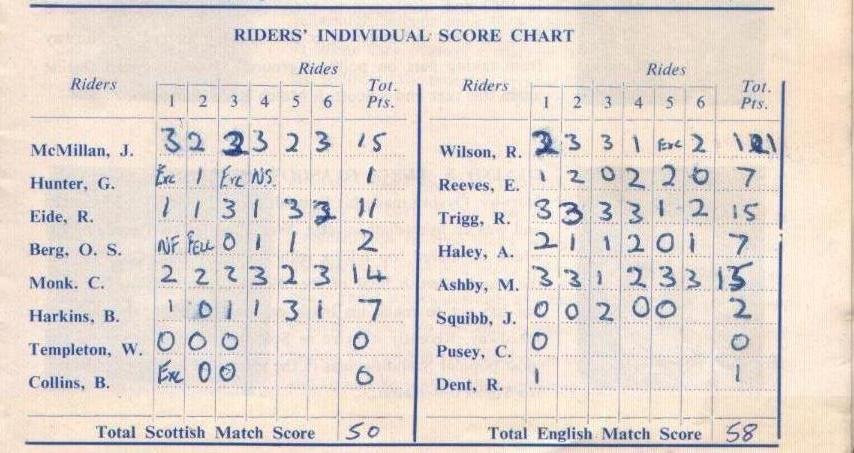 RIDERS' INDIVIDUAL SCORE CHART
Riders Rides Tot. Pts.
1 2 3 4 5 6
McMillan, J. 3 2 2 3 2 3 15
Hunter, G. Exc 1 Exc NS 1
Eide, R. 1 1 3 1 3 2 11
Berg, O. S. NF FELL 0 1 1 2
Monk. C. 2 2 2 3 2 3 14
Harkins, B. 1 0 1 1 3 1 7
Templeton, W. 0 0 0 0
Collins, B. Exc 0 0 0
Total Scottish Match Score 50
Riders Rides Tot. Pts.
1 2 3 4 5 6
Wilson, R. 3 3 1 Exc 2
Reeves, E. 1 2 0 2 2 0 7
Trigg, R. 3 3 3 3 1 2 15
Haley, A. 2 1 1 2 0 1 7
Ashby, M. 3 3 1 2 3 3 15
Squibb, J. 0 0 2 0 0 2
Pusey, C. 0 0
Dent, R. 1 1
Total English Match Score 58